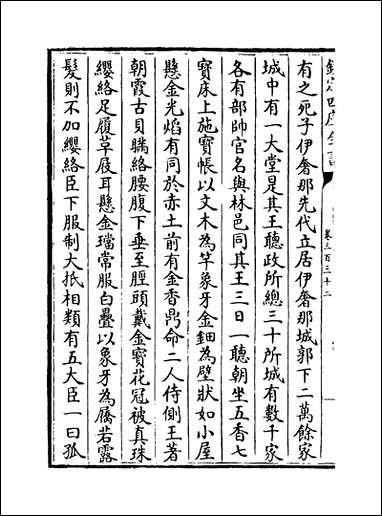 欽定四庫全書
卷三百三十二
有之死子伊奢那先代立居伊奢那城郭下二萬餘家
城中有一大堂是其王聽政所總三十所城有數千家
各有部帥官名與林邑同其王三日一聽朝坐五香七
寶床上施寶帳以文木為竿象牙金鈿為壁狀如小屋
懸金光焰有同於赤土前有金香鼎命二人侍側王著
朝霞古貝瞞絡腰腹下垂至脛頭戴金寶花冠被真珠
纓絡足履草屐耳懸金璫常服白疊以象牙為屩若露
髮則不加纓絡臣下服制大抵相類有五大臣一曰孤